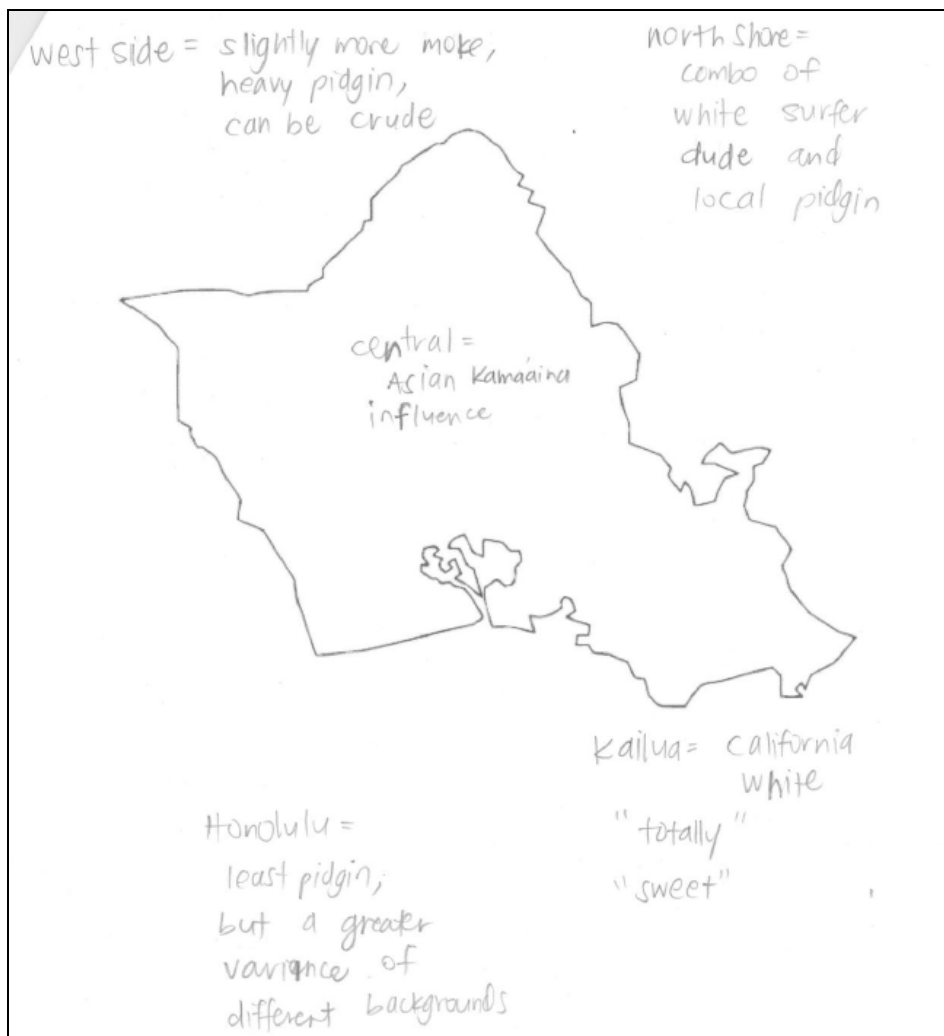 west side = slightly more moke,
heavy pidgin,
can be crude
north shore =
combo of
white surfer
dude and
local pidgin
central =
Asian Kama'aina
influence
Kailua = California
white
"totally"
"sweet"
Honolulu =
least pidgin,
but a greater
variance of
different backgrounds